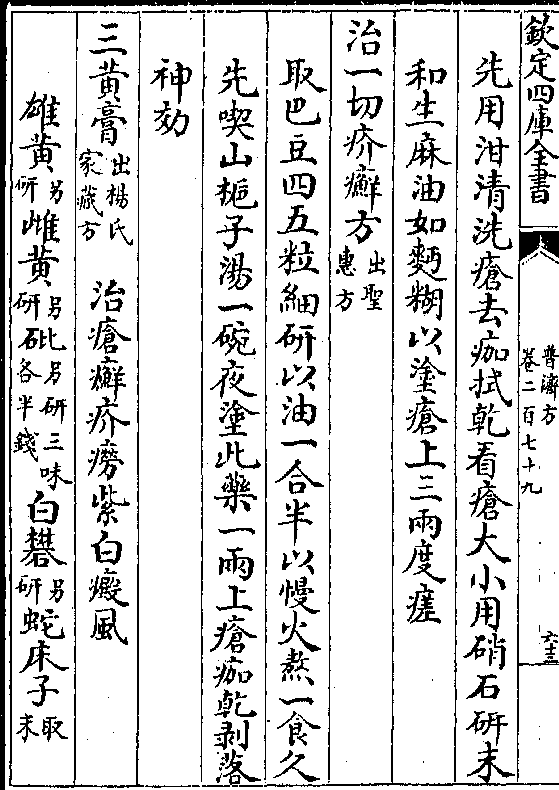 欽定四庫全書
普濟方
卷二百七十九
先用泔清洗瘡去痂拭乾看瘡大小用硝石研末
和生麻油如麪糊以塗瘡上三兩度瘥
治一切疥癬方出聖惠方
取巴豆四五粒細研以油一合半以慢火熬一食久
先喫山梔子湯一碗夜塗此藥一兩上瘡痂乾剥落
神効
三黄膏出楊氏家藏方 治瘡癬疥癆紫白癜風
雄黄另研雌黄另研砒另研三味各半錢白礬另研蛇床子取末